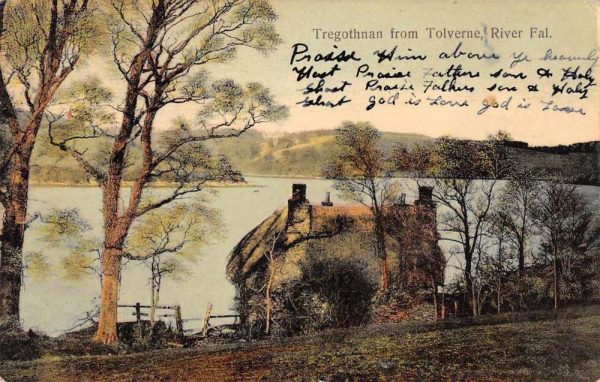 Tregothnan from Tolverne, River Fal.
Praise Him above ye heavenly
Host Praise Fathers son & Holy
Ghost Praise Fathers son & Holy
Ghost god is Love god is Love